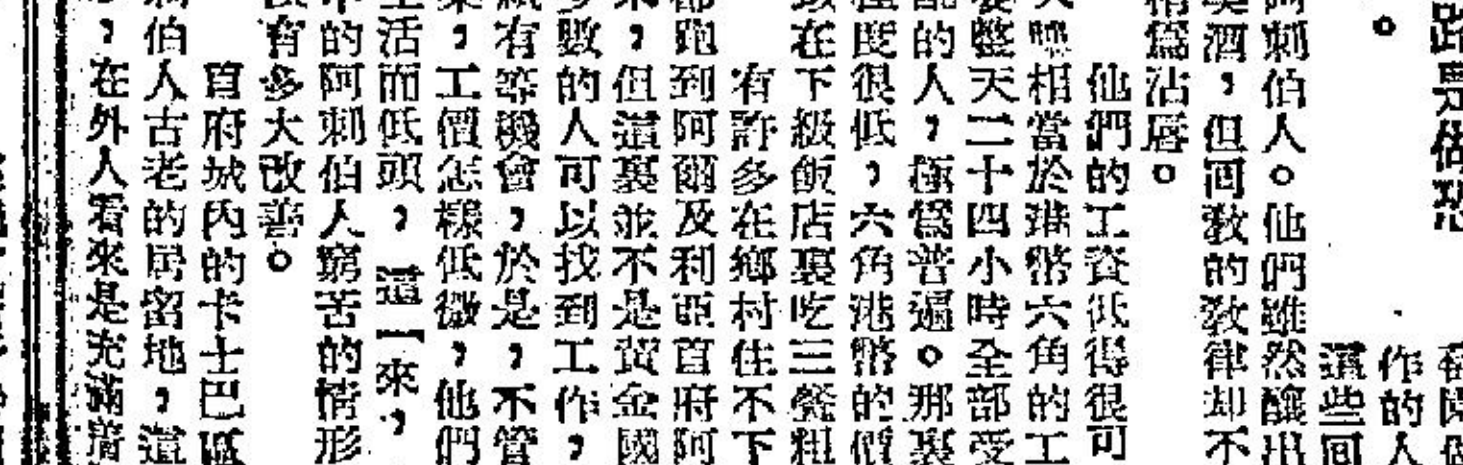 路是做恐
。
作的人
這些回
阿剌伯人。他們雖然釀出
美酒，但囘敎的敎律却不
稍爲沾唇。
他們的工資低得很可
相當於港幣六角的工
要整天二十四小時全部受
的人，極爲普遍。那裏
程度很低，六角港幣的價
以在下級飯店裏吃三餐粗
有許多在鄉村住不下
都跑到阿爾及利亞首府阿
來，但這裏並不是黃金國
多數的人可以找到工作，
祇有等機會，於是，不管
，工價怎樣低微，他們
生活而低頭，這一來，
中的阿剌伯人窮苦的情形
有多大改善。
首府城內的卡士巴區
剌伯人古老的居留地，這
，在外人看來是充滿着